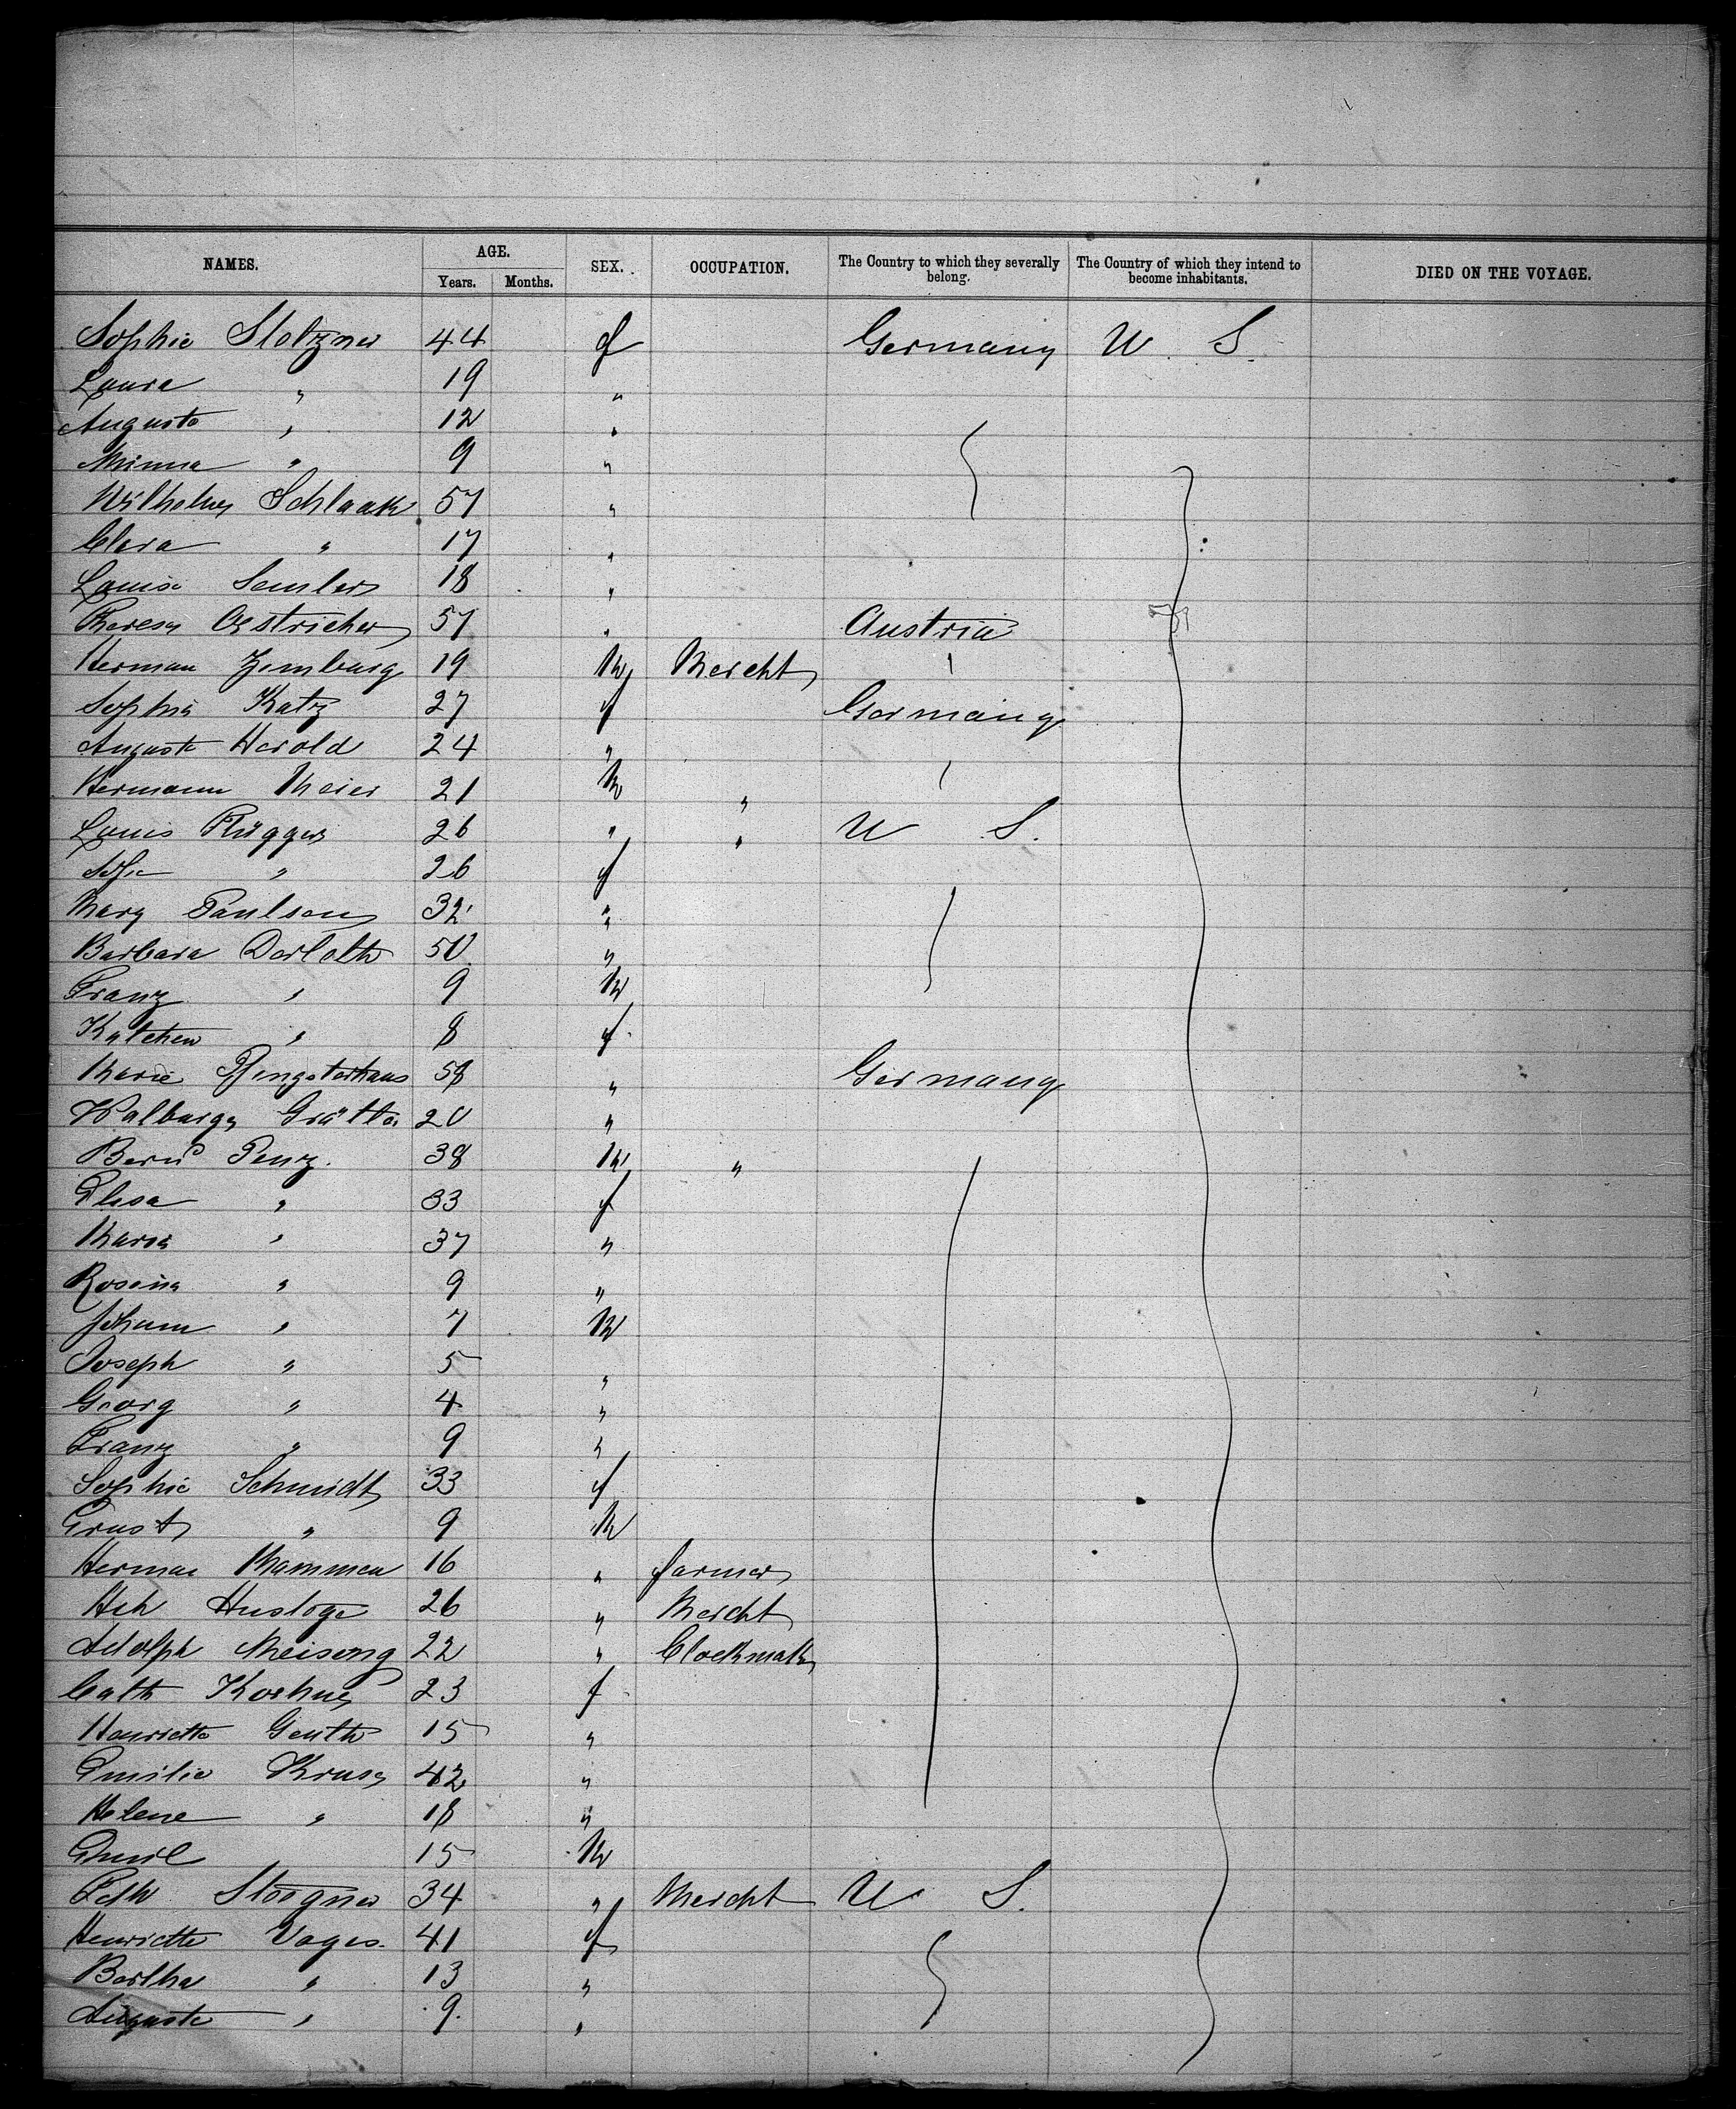 NAMES. AGE. SEX. OCCUPATION. The Country to which they severally belong. The Country of which they intend to become inhabitants. DIED ON THE VOYAGE.
Years. Months.
Sophie Stolzner 44 f Germany U. S.
Laura " 19 "
Auguste " 12 "
Minna " 9 "
Wilhelm Schlaak 57 "
Clara " 17 "
Louise Semler 18 "
Theresa Oestricher 57 " Austria
Herman Zemburg 19 M Mercht
Sophia Katz 27 f Germany
Auguste Herold 24 "
Hermann Meier 21 M "
Louis Flügger 26 " " U. S.
Sofie " 26 f
Mary Paulsen 32 "
Barbara Derloth 50 "
Franz " 9 M
Katchen " 8 f
Marie Pfingsterhaus 58 " Germany
Walburga Grätter 20 "
Bernd Penz. 38 M "
Elisa " 33 f
Maria " 37 "
Rosina " 9 "
Johann " 7 M
Joseph " 5 "
Georg " 4 "
Franz " 9 "
Sophie Schmidt 33 f
Ernst " 9 M
Herman Mammen 16 " farmer
Hch Hustoge 26 " Mercht
Adolph Meisong 22 " Clockmak
Cath 23 f
Henriette Genth 15 "
Emilie Kruse 42 "
Helene " 18 "
Emil " 15 M
34 " Mercht U. S.
Henriette Voges. 41 f
Bertha " 13 "
Auguste " 9. "